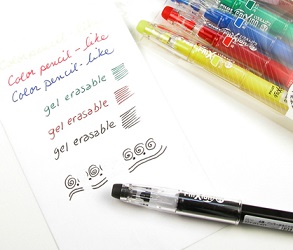 Color pencil-like
Color pencil-like
gel erasable
gel erasable
gel erasable